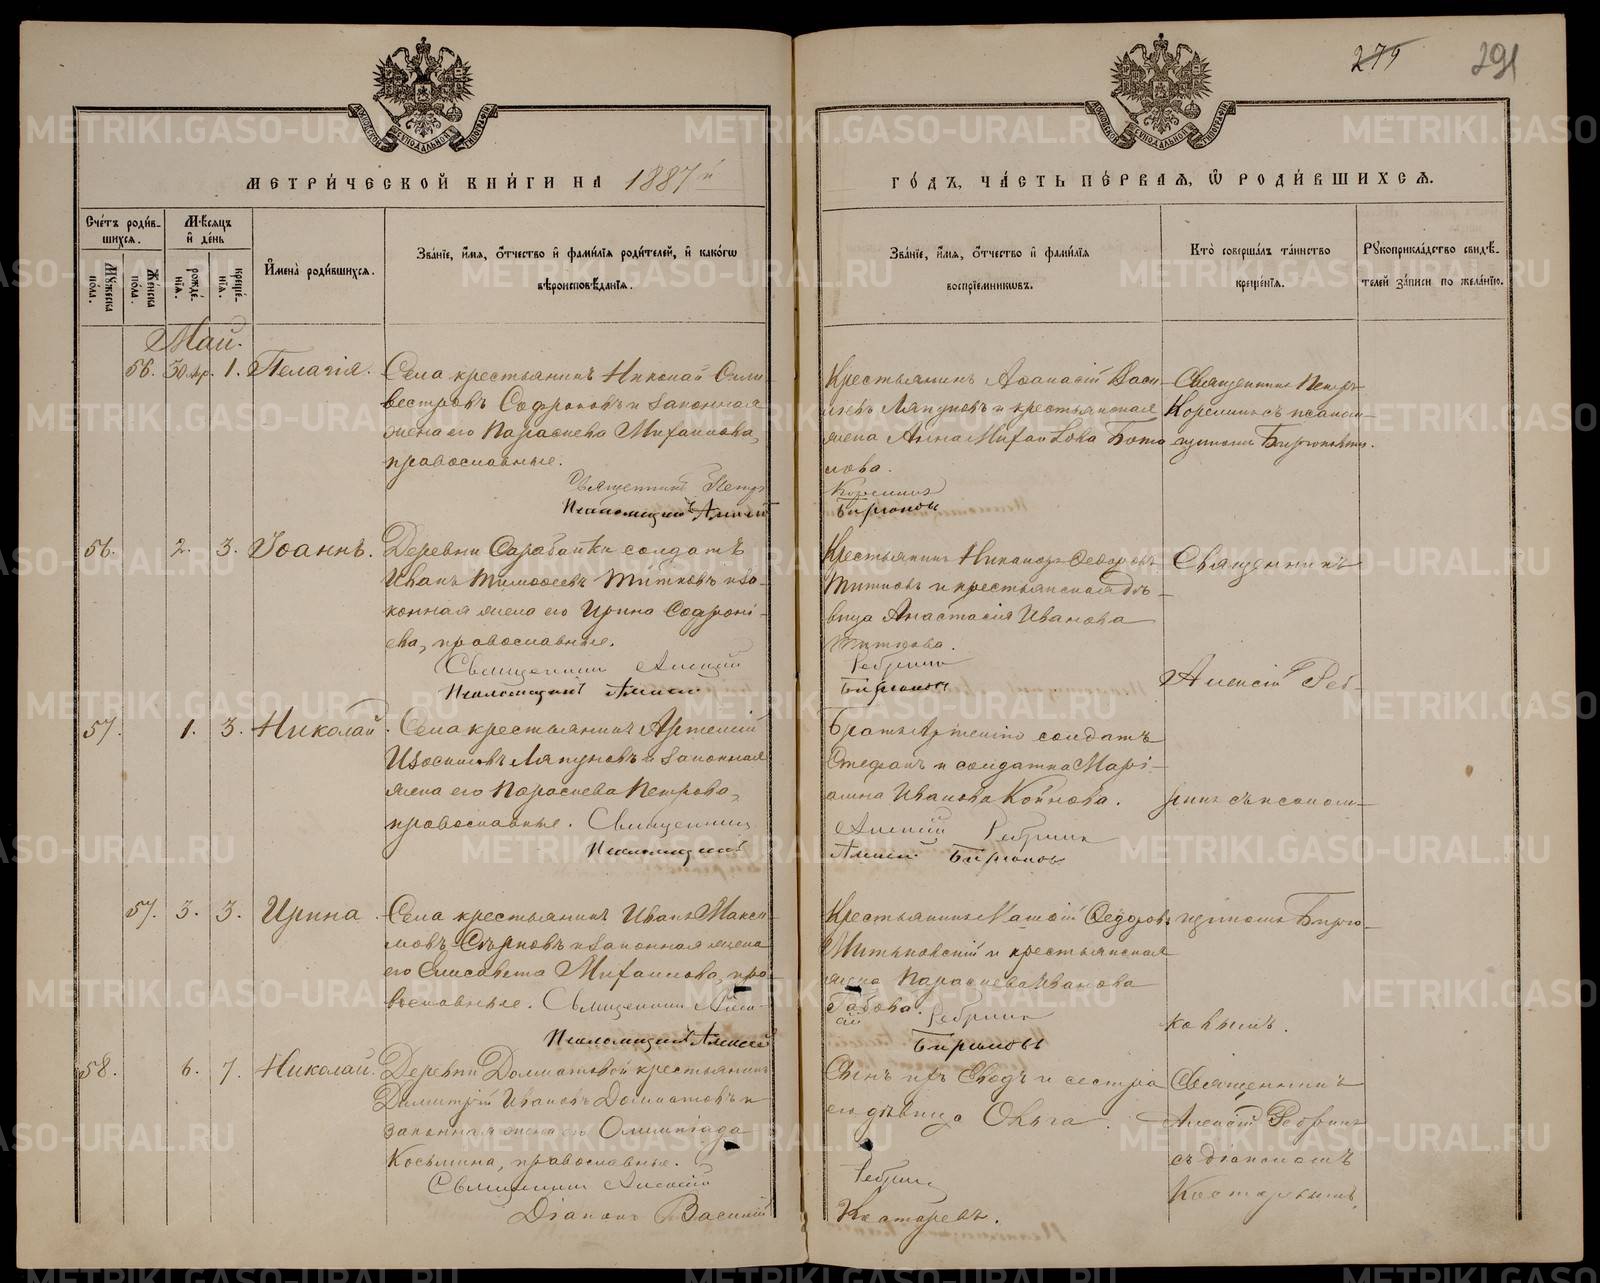 279
291
МЕТРИ́ЧЕСКОЙ КНИ́ГИ НА 1887 й
ГО́ДЪ, ЧА́СТЬ ПЕ́РВАЯ, Ѡ РОДИ́ВШИХСЯ.
Сче́тъ роди́в-
шихся.
Му́жеска
пола.
Же́нска
пола.
Мѣсяцъ
и де́нь
рожде́-
нія.
креще́-
нія.
Имена̀ роди́вшихся.
Зва́ніе, и́мя, о́тчество и фами́лія роди́телей, и како́гω
вѣроисповѣ́данія.
Зва́ніе, и́мя, о́тчество и фами́лія
воспріе́мникωвъ.
Кто̀ соверша́лъ та́инство
креще́нія.
Рукоприкла́дство свидѣ́-
телей за́писи по жела́нію.
Май.
56. 30 ап. 1. Пелагія.
Села крестьянинъ Николай Сили-
вестровъ Софроновъ и законная
жена его Параскева Михаилова,
православные.
Священникъ Петръ
Псаломщикъ Алексій
Крестьянинъ Аѳанасій Васи-
льевъ Ляпуновъ и крестьянская
жена Анна Михайлова
Корелинъ
Бирюковъ
Священникъ Петръ
Корелинъ съ псалом-
щикомъ Бирюковымъ.
56. 2. 3. Іоаннъ.
Деревни солдатъ
Иванъ Тимоѳеевъ Титковъ и за-
конная жена его Ирина Софроні-
ева, православные.
Священникъ Алексій
Псаломщикъ Алексій
Крестьянинъ Никаноръ Ѳедоровъ
и крестьянская дѣ-
вица Анастасія Иванова
Ребринъ
Бирюковъ
Священникъ
Алексій Реб-
57. 1. 3. Николай.
Села крестьянинъ Артемій
Ляпуновъ и законная
жена его Параскева Петрова,
православные. Священникъ
Псаломщикъ
Братъ Артемію солдатъ
Стефанъ и солдатка Марі-
амна Иванова
Алексій Ребринъ
Алексій Бирюковъ
ринъ съ псалом-
57. 3. 3. Ирина.
Села крестьянинъ Иванъ Макси-
мовъ и законная жена
его Елисавета Михаилова, пра-
вославные. Священникъ Алек-
Псаломщикъ Алексій
Крестьянинъ Ѳедоровъ
и крестьянская
жена Параскева Иванова
сій Ребринъ
Бирюковъ
щикомъ Бирю-
ковымъ.
58. 6. 7. Николай.
Деревни Долматовой крестьянинъ
Димитрій Ивановъ Долматовъ и
законная жена его Олимпіада
Косьмина, православные.
Священникъ Алексій
Діаконъ Василій
Сынъ и сестра
его дѣвица Ольга.
Ребринъ
Костаревъ.
Священникъ
Алексій Ребринъ
съ діакономъ
Костаревымъ.
METRIKI.GASO-URAL.RU